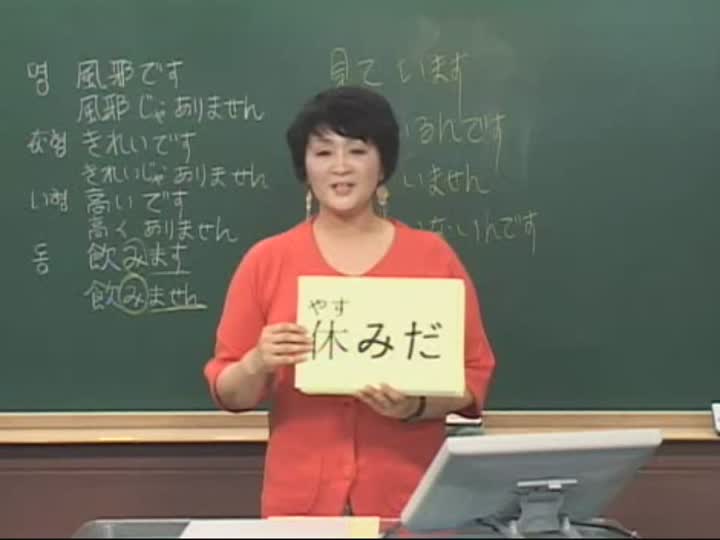 명 風邪です
風邪じゃありません
な형 きれいです
きれいじゃありません
い형 高いです
高くありません
동 飲みます
飲みません
見ています
いるんです
いません
いないんです
やす
休みだ